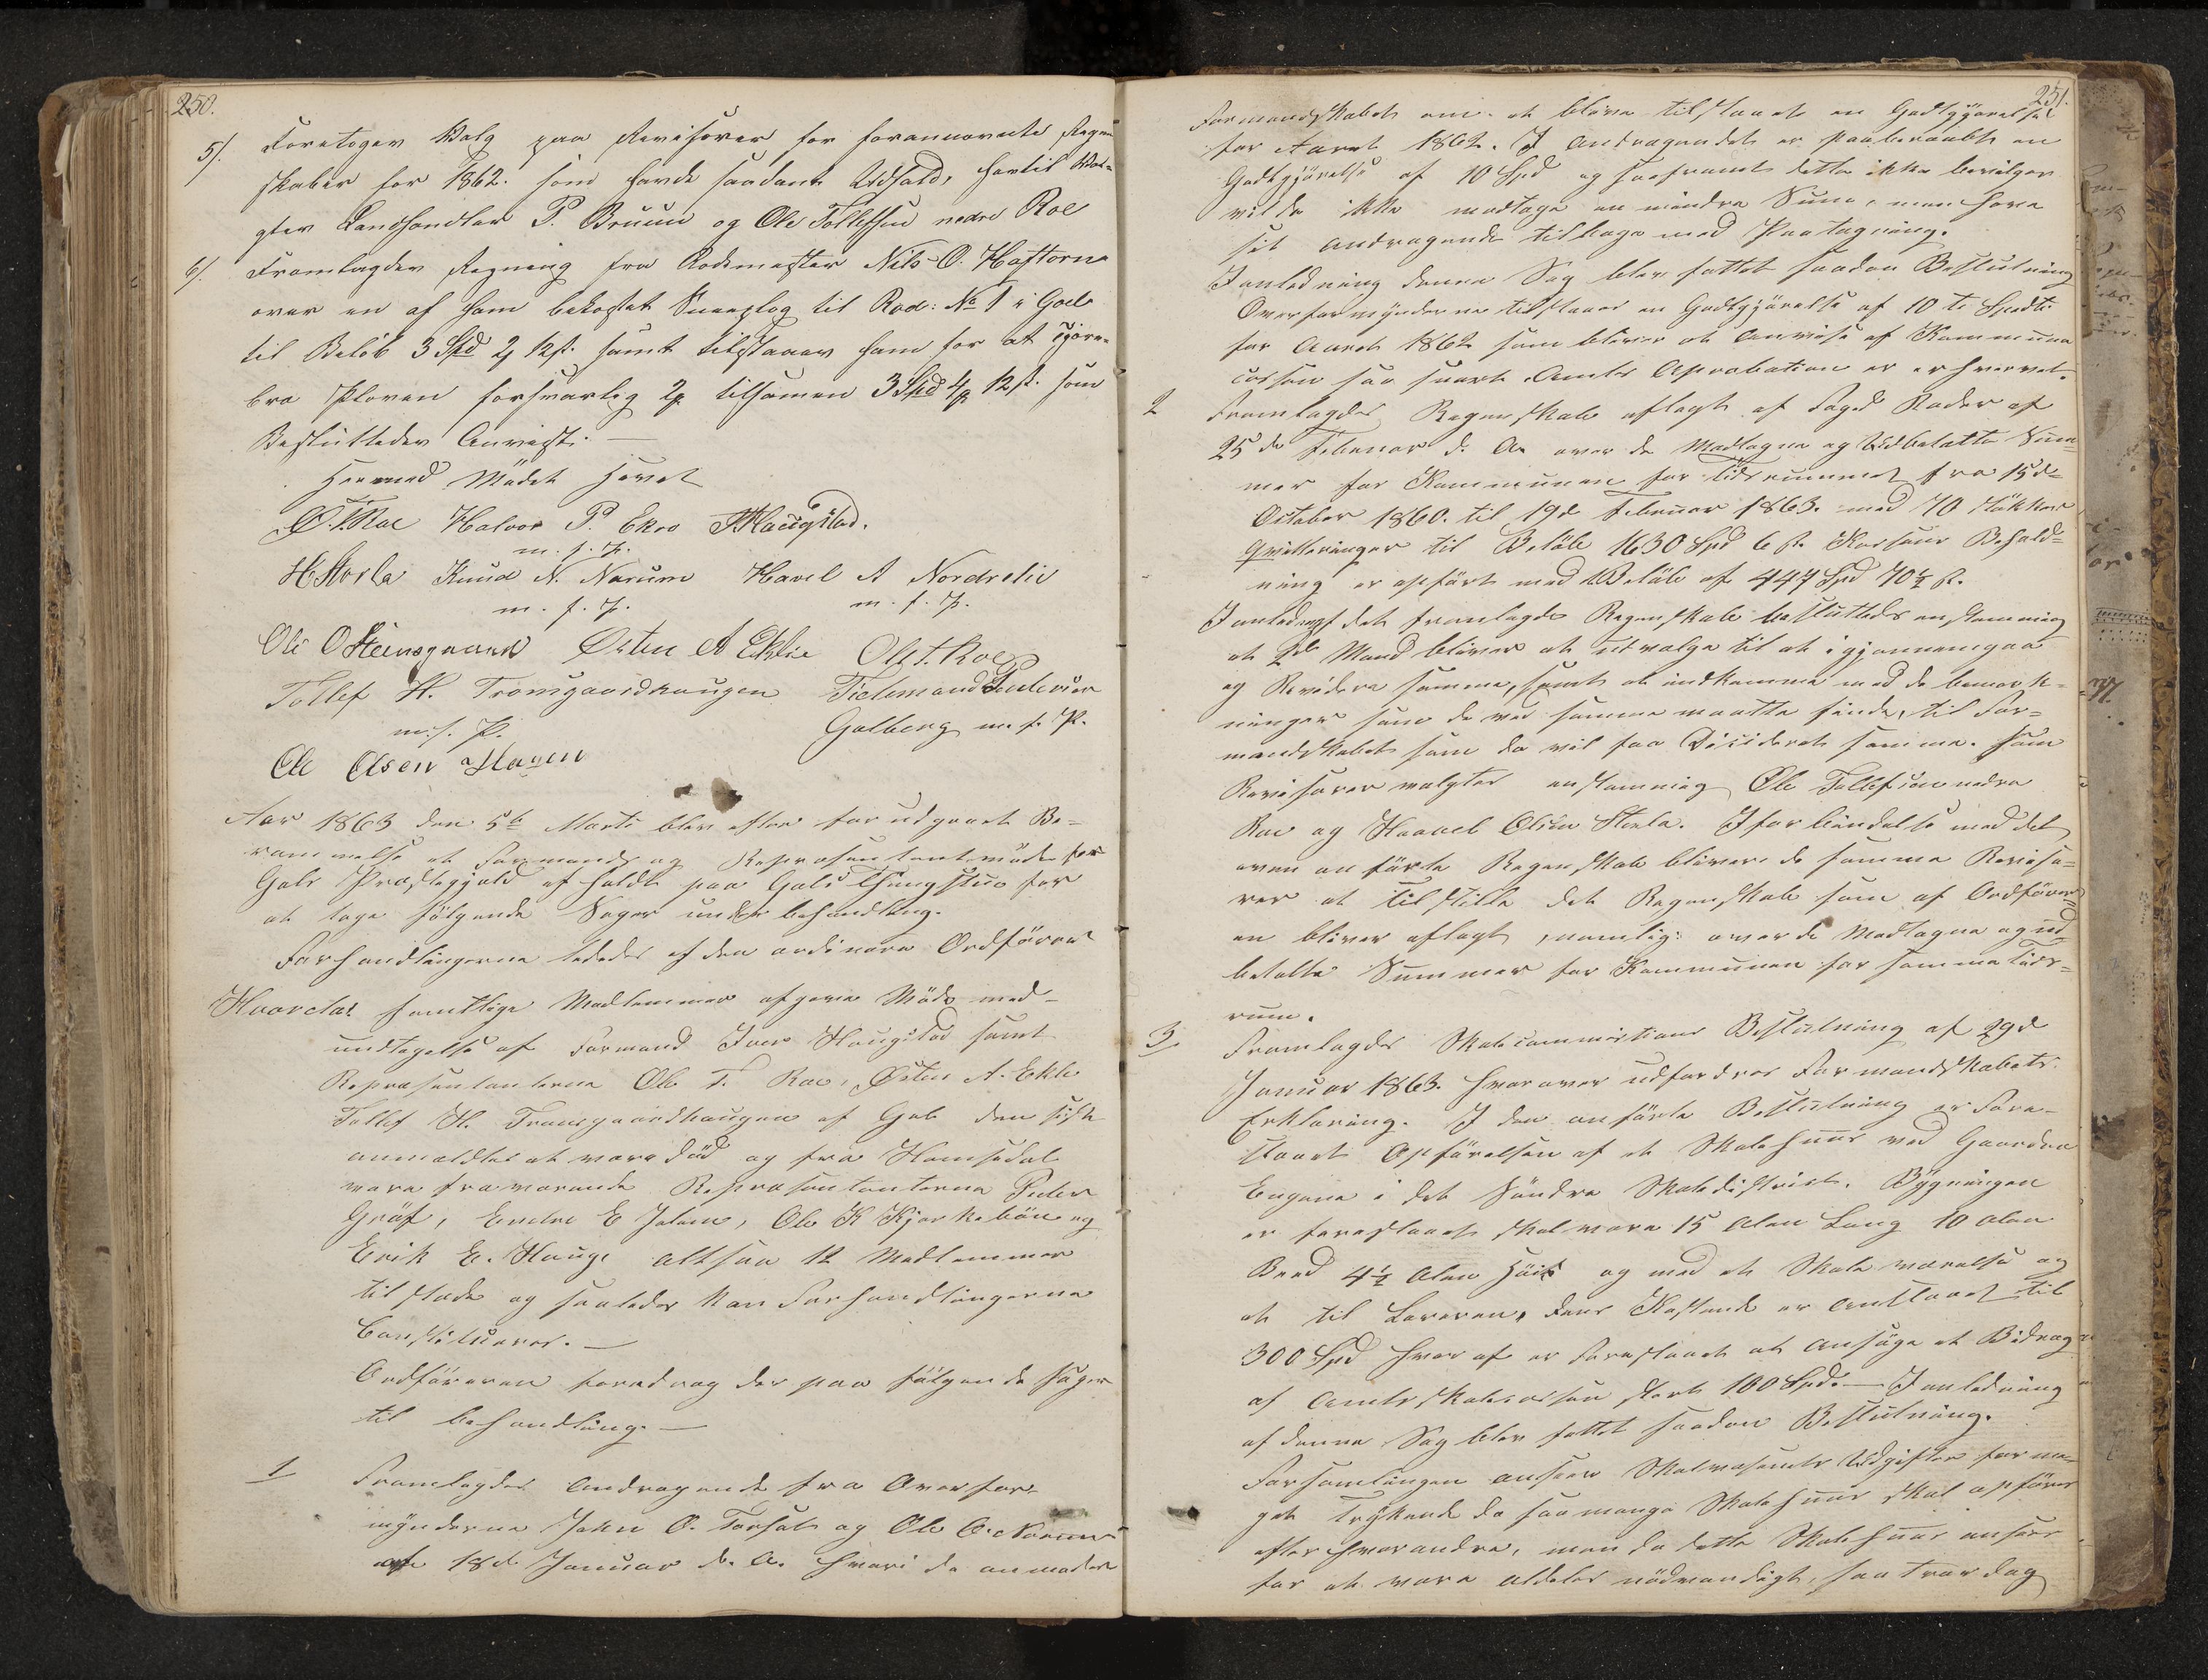 250.
5/. Foretoges Valg paa Revisorer for forannævnte Regn-
skaber for 1862. som havde saadant Udfald, hertil Val-
gtes Landhandler P. Bruun og Ole Tollefsen nedre Roe
6/. Fremlagdes Regning fra Rodemester Nils O. Haftorn
over en af ham bekostet Sneeplog til Rod: No 1 i Gols
til Beløb 3 Spd 2 12 s. samt tilstaaes ham for at
bra Ploven forsvarlig tilsamen 3 Spd 4 12 s. som
Besluttedes Anvist. —
Hermed Mødet Hævet
O. T. Roe Halvor P. Ekro Haugstad.
m. f. P.
H Storla Knud N. Narum Havel A Nordrelie
m. f. P. m. f. P.
Ole O Steinsgaard Østen A Eklie Ole T. Roe
Tollef H. Tronsgaardhaugen Tidemand Pedersen
m. f. P. Golberg m. f. P.
Ole Olsen Hagen
Aar 1863 den 5te Marts blev efter forudgaaet Be-
rammelse et Formands og Repræsentantmøde for
Gols Præstegjeld afholdt paa Gols Thingstue for
at tage følgende Sager under behandling.
Forhandlingerne lededes af den ordinære Ordfører
Hvorda samtlige Medlemmer afgave Møde med-
undtagelse af Formand Iver Haugstad samt
Repræsentanterne Ole T. Roe, Østen A. Eklie
Tollef H. Tronsgaardhaugen af Gol den sidste
anmeldtes at være død og fra Hemsedal
vare fraværende Repræsentanterne Peder
Grøf, Endre E Jelem, Ole K Kjerkebøen og
Erik E. Hauge altsaa 12 Medlemmer
tilstede og saaledes kan Forhandlingerne
Constitueres. —
Ordføreren foredrog derpaa følgende Sager
til behandling. —
1 Fremlagdes Andragende fra Overfor-
mynderne John O. Torset og Ole O. Narum
af 18de Januar d. A. hvori de anmoder
251.
Formandskabet om at blive tilstaaet en Godtgjørelse
for Aaret 1862. I Andragendet er paaberaabt en
Godtgjørelse af 10 Spd og saafremt dette ikke bevilges
vil de ikke modtage en mindre Sum, men have
sit Andragende tilbage med Paategning.
I anledning denne Sag blev fattet saadan Beslutning
Overformynderne tilstaaes en Godtgjørelse af 10 ti Speci
for Aaret 1862 som bliver at Anvise af Kommune
cassen saa snart Amtets Aprobation er erhvervet.
2 Fremlagdes Regnskab aflagt af Foged Rader af
25de Februar d. A. over de Modtagne og Udbetalte Sum-
mer for Kommunen for Tidsrummet fra 15de
October 1860. til 19de Februar 1863. med 70 Stykker
Qvitteringer til Beløb 1630 Spd 6 s. Kassens Behold-
ning er opført med Beløb af 447 Spd 70½ s.
I anledning det fremlagde Regnskab besluttedes enstemmig
at 2de Mænd bliver at udvælge til at igjennemgaa
og Revidere samme, samt at indkomme med de bemærk-
ninger som de ved samme maatte finde, til For-
mandskabet som da vil faa Decideret samme. Som
Revisorer valgtes enstemmig Ole Tollefsen nedre
Roe og Haavel Olsen Storla. I forbindelse med det
oven anførte Regnskab bliver de samme Reviso-
rer at tilstille det Regnskab som af Ordfører-
en bliver aflagt, nemlig: over de Modtagne og ud
betalte Summer for Kommunen for samme Tids-
rum.
3. Fremlagdes Skolecommistions Beslutning af 29de
Januar 1863. hvorover udfordres Formandskabets
Erklæring. I den anførte Beslutning er Fore-
slaaet Opførelsen af et Skolehuus ved Gaarden
Engene i det Søndre Skoledistrict. Bygningen
er foreslaaet skal være 15 Alen Lang 10 Alen
Bred 4½ Alen Høit og med et Skoleværelse og
et til Læreren, dens Kostende er Anslaaet til
300 Spd hvoraf er Foreslaaet at Ansøge et Bidrag
af Amtsskolecassen stort 100 Spd. — I anledning
af denne Sag blev fattet saadan Beslutning.
Forsamlingen anseer Skolevæsenets Udgifter for me-
get Trykende da saamange Skolehuus skal opføres
efter hverandre, men da dette Skolehuus ansees
for at være aldeles nødvendigt, saa troer dog